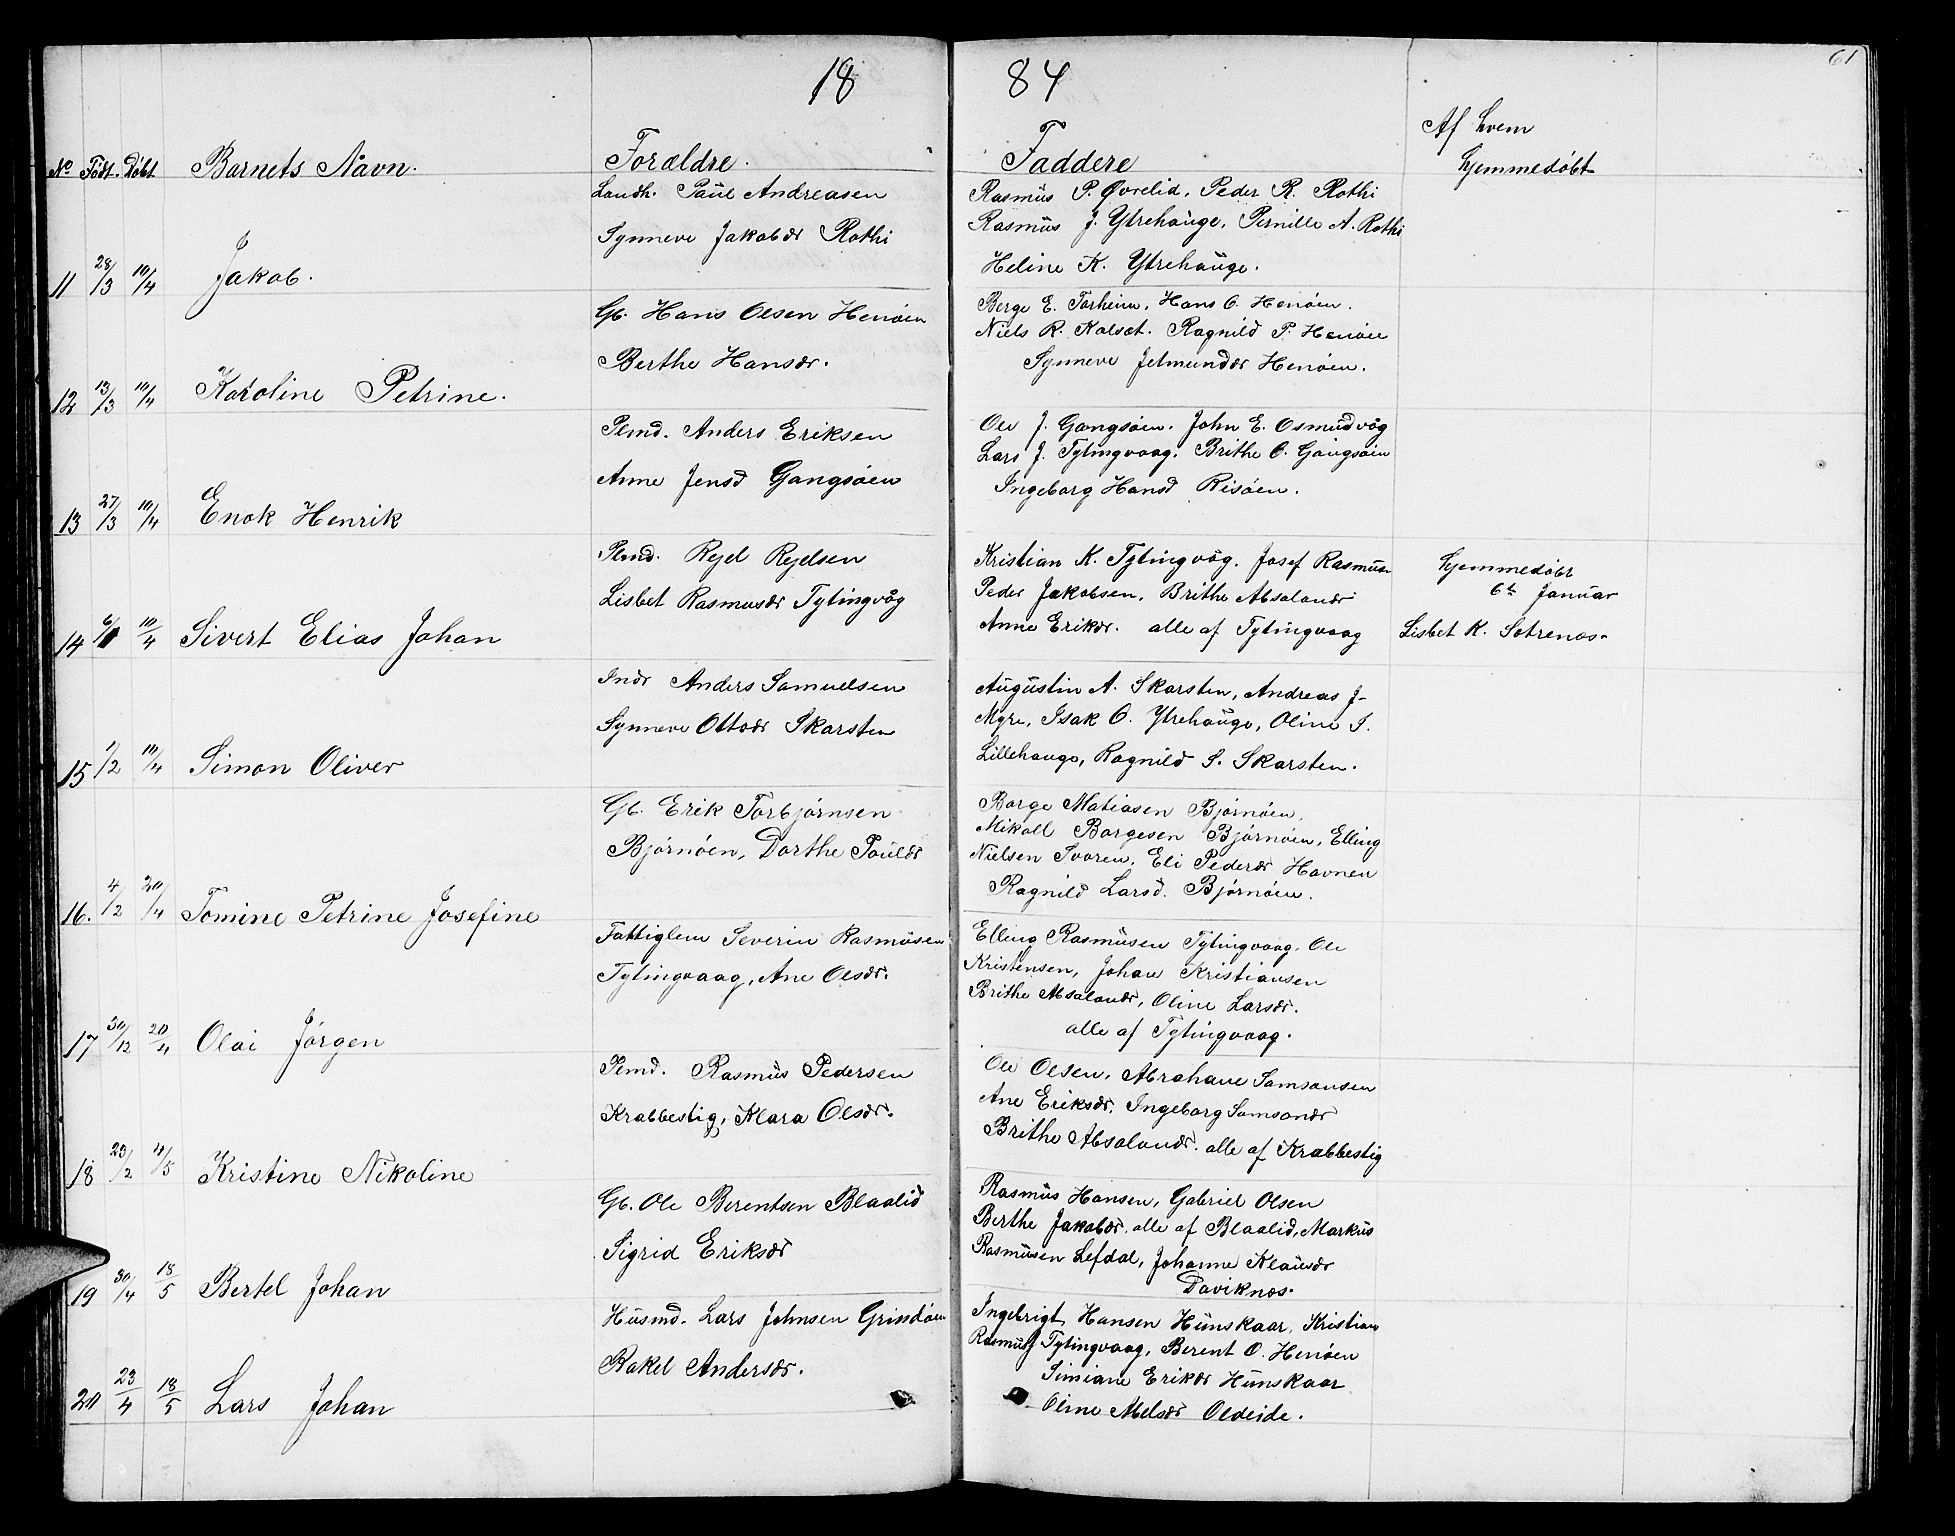 18 84
61
No Født. Døbt Barnets Navn. Forældre. Faddere Af hvem
hjemmedøbt
Landh. Paul Andreasen Rasmus P. Øvrelid, Peder R. Rothi
Synneve Jakobdr Rothi Rasmus J. Ytrehauge, Pernille A. Rothi
11 28/3 10/4 Jakob. Heline K. Ytrehauge.
Gb. Hans Olsen Henøen Berge E. Torheim, Hans O. Henøen.
Berthe Hansdr. Niels R. Kalsæt. Ragnild P. Henøen
12 13/3 10/4 Karoline Petrine. Synneve Jetmunddr Henøen.
Plmd. Anders Eriksen Ole J. Gangsøen. John E. Osmudvåg
Anne Jensd Gangsøen Lars J. Tytingvaag. Brithe O. Gangsøen
13 27/3 10/4 Enok Henrik Ingeborg Hansd Risøen.
Plmd. Rejel Rejelsen Kristian K. Tytingvåg. Josef Rasmus- hjemmedøbt
Lisbet Rasmusdr Tytingvåg Peder Jakobsen, Brithe Absalondr 6te Januar
14 6/1 10/4 Sivert Elias Johan Anne Erikdr. alle af Tytingvaag Lisbet K. Sætrenæs.
Indr Anders Samuelsen Augustin A. Skarsten, Andreas J-
Synneve Ottodr Skarsten Myre, Isak O. Ytrehauge, Oline S.
15 1/2 10/4 Simon Oliver Lillehauge, Ragnild S. Skarsten.
Gb. Erik Torbjørnsen Borge Matiasen Bjørnøen,
Bjørnøen, Dorthe Pouldr Mikall Borgesen Bjørnøen, Elling
Nielsen Svoren, Eli Pederdr Havnen
16. 4/2 20/4 Tomine Petrine Josefine Ragnild Larsd. Bjørnøen.
Fattiglem Severin Rasmusen Elling Rasmusen Tytingvaag. Ole
Tytingvaag, Ane Olsdr. Kristensen, Johan Kristiansen
Brithe Absalondr, Oline Larsdr.
17 30/12 20/4 Olai Jørgen alle af Tytingvaag.
Plmd. Rasmus Pedersen Ole Olsen, Abraham Samsonsen
Krabbestig, Klara Olsdr. Ane Eriksdr, Ingeborg Samsondr
18 23/2 11/5 Kristine Nikoline Brithe Absalondr. alle af Krabbestig
Gb. Ole Berentsen Blaalid Rasmus Hansen, Gabriel Olsen
Sigrid Eriksdr Berthe Jakobdr. alle af Blaalid, Markus
Rasmusen Lefdal, Johanne Klausdr
19 30/4 18/5 Bertel Johan Daviknæs.
Husmd. Lars Johnsen Grindøen Ingebrigt Hansen Hunskaar, Kristian
Rakel Andersdr. Rasmus Tytingvaag, Berent O. Henøen
Simiane Erikdr Hunskaar
20 23/4 18/5 Lars Johan Oline Abelsdr Oldeide.